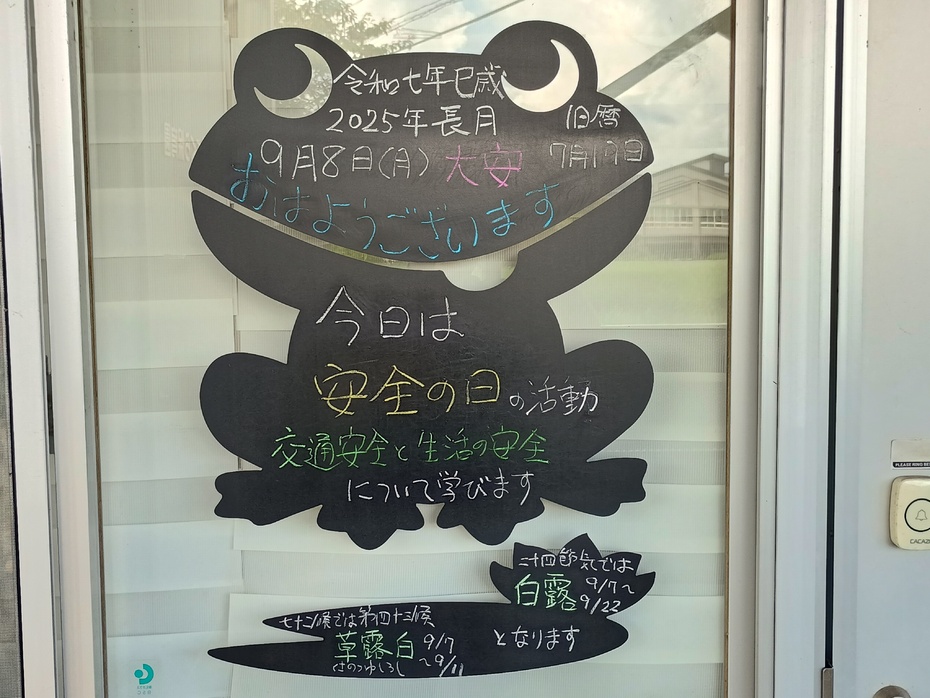 令和七年巳歳
2025年長月
旧暦
9月8日(月) 大安
7月17日
おはようございます
今日は
安全の日の活動
交通安全と生活の安全
について学びます
二十四節気では
白露 9/7~
9/22
七十二候では第四十三候
草露白 9/7
くさのつゆしろし ~9/11
となります
CACAZI